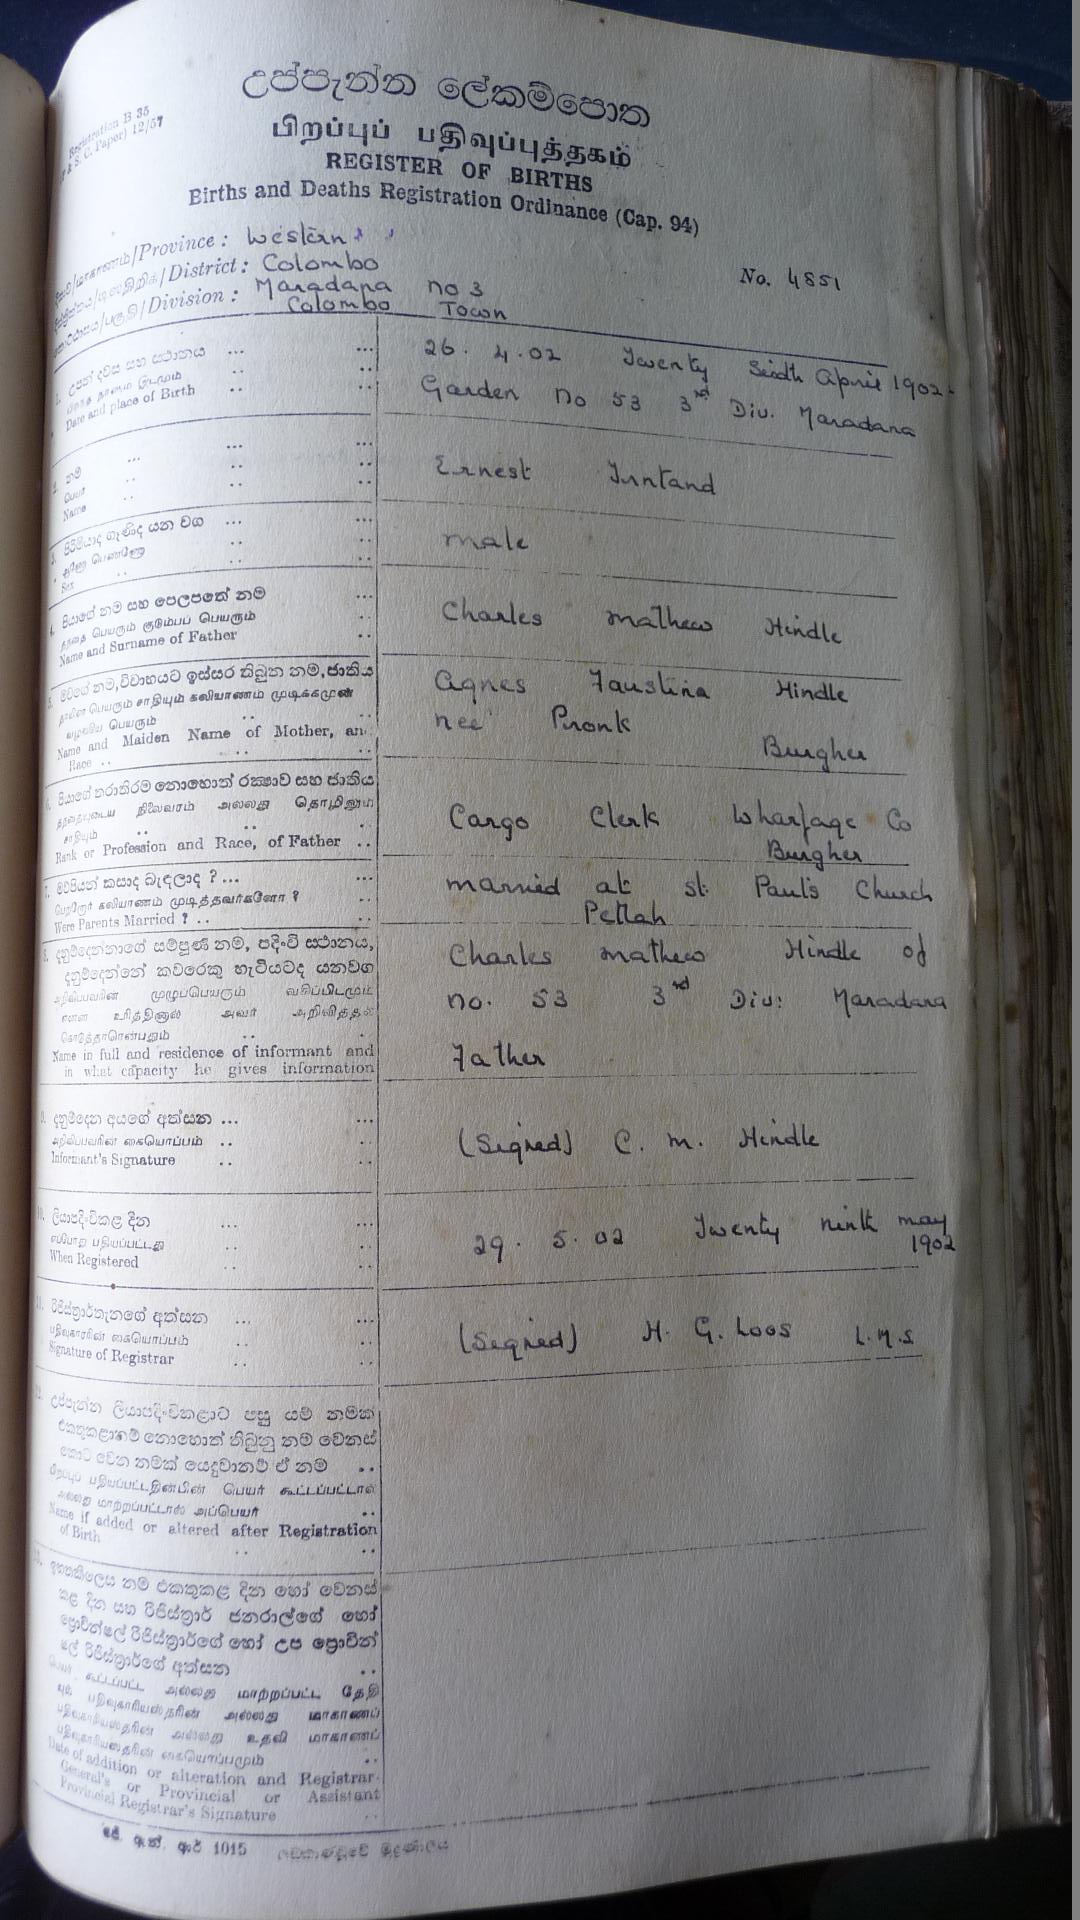 Registration B 35
& S. C. Paper) 12/57
උප්පැන්න ලේකම්පොත
பிறப்புப் பதிவுப்புத்தகம்
REGISTER OF BIRTHS
Births and Deaths Registration Ordinance (Cap. 94)
/Province : Western
/District : Colombo
No. 4851
/Division : Maradana no 3
Colombo Town
1. උපන් දවස සහ ස්ථානය ... ...
26. 4. 02 Twenty Sixth April 1902-
Date and place of Birth
Garden no 53 3rd Div. Maradana
2. නම ... ...
பெயர்
Name
Ernest
3. පිරිමියාද ගෑණිද යන වග ... ...
ஆணோ பெண்ணோ
Sex
male
4. පියාගේ නම සහ පෙලපතේ නම ...
தந்தை பெயரும் குடும்பப் பெயரும்
Name and Surname of Father
Charles mathew Hindle
5. මවගේ නම, විවාහයට ඉස්සර තිබුන නම, ජාතිය
தாயின் பெயரும் சாதியும் கலியாணம் முடிக்கமுன்
பெயரும்
Name and Maiden Name of Mother, an
Race ..
Agnes Faustina Hindle
nee Pronk
Burgher
6. පියාගේ තරාතිරම නොහොත් රක්ෂාව සහ ජාතිය
தந்தையுடைய நிலைவரம் அல்லது தொழிலும்
சாதியும்
Rank or Profession and Race, of Father ..
Cargo Clerk Wharfage Co
Burgher
7. මව්පියන් කසාද බැඳලාද ? ... ...
பெற்றோர் கலியாணம் முடித்தவர்களோ ?
Were Parents Married ? ..
married at St. Paul's Church
Pettah
8. දනුම්දෙන්නාගේ සම්පූර්ණ නම, පදිංචි ස්ථානය,
දනුම්දෙන්නේ කවරෙකු හැටියටද යනවග
அறிவிப்பவரின் முழுப்பெயரும் வசிப்பிடமும்
என்ன உரித்தினால் அவர் அறிவித்தல்
கொடுத்தாரென்பதும்
Name in full and residence of informant and
in what capacity he gives information
Charles mathew Hindle of
no. 53 3rd Div: Maradana
Father
9. දනුම්දෙන අයගේ අත්සන ... ...
அறிவிப்பவரின் கையொப்பம் ..
Informant's Signature ..
(Signed) C. m. Hindle
10. ලියාපදිංචිකළ දින ... ...
எப்போது பதியப்பட்டது
When Registered
29. 5. 02 Twenty ninth may
1902
11. රිජිස්ත්‍රාර්තැනගේ අත්සන ... ...
பதிவுகாரரின் கையொப்பம்
Signature of Registrar
(Signed) H. G. Loos L.M.S
12. උප්පැන්න ලියාපදිංචිකළාට පසු යම් නමක්
එකතුකළානම් නොහොත් තිබුනු නම වෙනස්
කොට වෙන නමක් යෙදුවානම් ඒ නම ..
பிறப்புப் பதியப்பட்டதின்பின் பெயர் கூட்டப்பட்டால்
அல்லது மாற்றப்பட்டால் அப்பெயர் ..
Name if added or altered after Registration
of Birth
13. ඉහතකීලෙස නම එකතුකළ දින හෝ වෙනස්
කළ දින සහ රිජිස්ත්‍රාර් ජනරාල්ගේ හෝ
ප්‍රොවින්ෂල් රිජිස්ත්‍රාර්ගේ හෝ උප ප්‍රොවින්
ෂල් රිජිස්ත්‍රාර්ගේ අත්සන ..
பெயர் கூட்டப்பட்ட அல்லது மாற்றப்பட்ட தேதி
யும் பதிவுகாரியஸ்தரின் அல்லது மாகாணப்
பதிவுகாரியஸ்தரின் அல்லது உதவி மாகாணப்
பதிவுகாரியஸ்தரின் கையொப்பமும் ..
Date of addition or alteration and Registrar-
General's or Provincial or Assistant
Provincial Registrar's Signature ..
ජේ. ඇන්. ආර් 1015